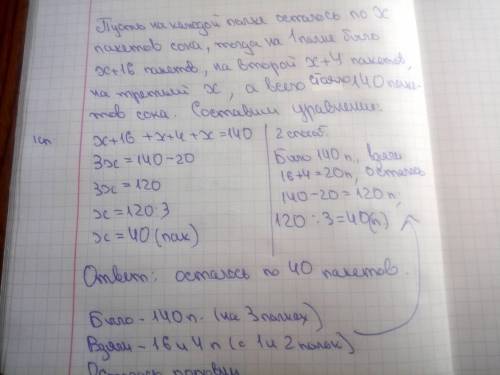 Пусть на каждой полке осталось по x
пакетов сока, тогда на 1 полке было
x+16 пакетов, на второй x+4 пакетов,
на третьей x, а всего стояло 140 паке-
тов сока. Составим уравнение:
1 сп.
x+16 +x+4+x=140
3x=140-20
3x=120
x=120:3
x=40 (пак)
2 способ.
Было 140 п., взяли
16+4=20п, осталось
140-20=120 п;
120:3=40(п)
Ответ: осталось по 40 пакетов.
Было - 140 п. (на 3 полках)
Взяли - 16 и 4 п (с 1 и 2 полок)
Осталось поровну